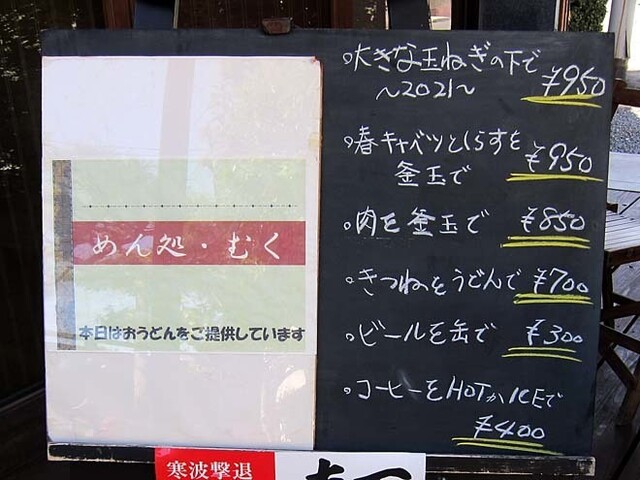 めん処・むく
本日はおうどんをご提供しています
大きな玉ねぎの下で
～2021～ ¥950
春キャベツとしらすを
釜玉で ¥950
肉を釜玉で ¥850
きつねをうどんで ¥700
ビールを缶で ¥300
コーヒーをHOTかICEで
¥400
寒波撃退